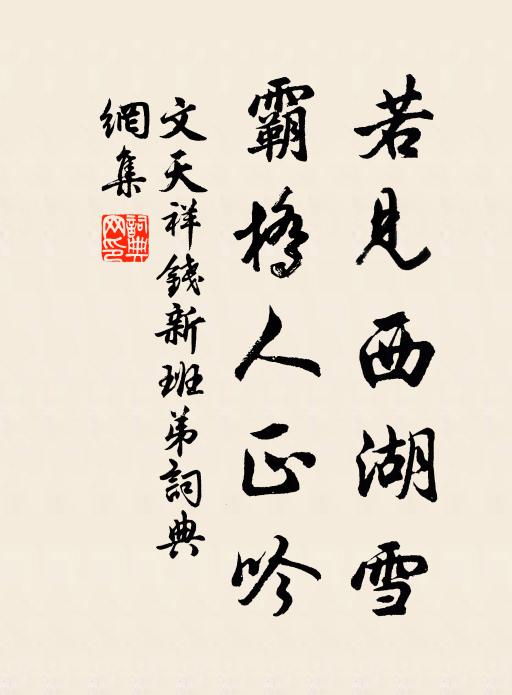 若見西湖雪
霸橋人正吟
文天祥錢新班弟詞典
網集
詞典網印